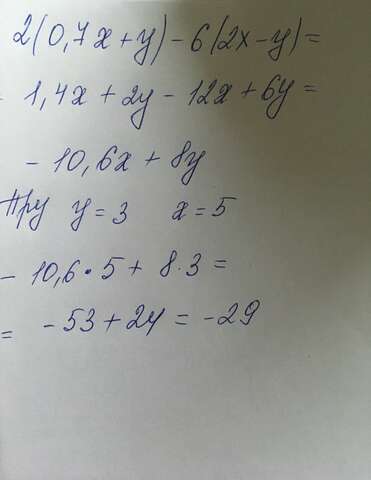 2(0,7x+y)-6(2x-y)=
- 1,4x+2y-12x+6y=
- 10,6x+8y
При y=3 x=5
- 10,6·5+8·3=
= -53+24=-29